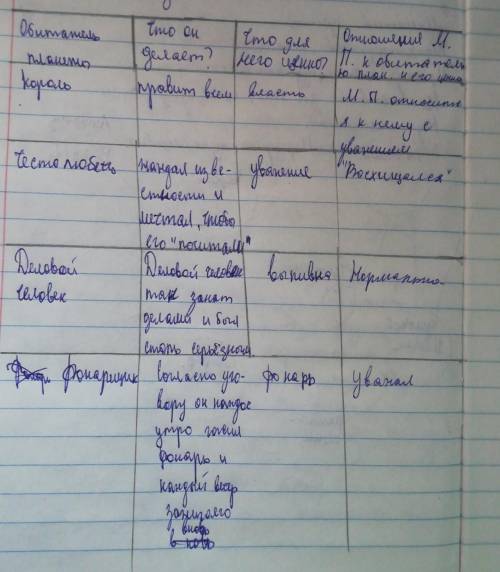 Обитатель Что он Что для Отношения М.
планеты делает? него ценно? П. к обитател
ю план. и его цена
Король правит всем власть М. П. относитс
я к нему с
уважением
Честолюбец жаждал изве- уважение "Восхищался"
стности и
мечтал, чтобы
его "почитали"
Деловой Деловой человек выпивка Нормально
человек так занят
делами и был
столь серьёзной.
Фонарщик согласно уго- фонарь уважал
вору он каждое
утро гасил
фонарь и
каждый вечер
зажигал его
вновь